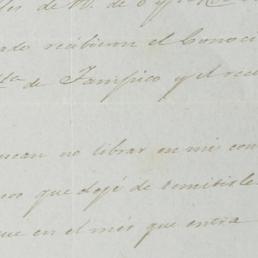 de N. de
recibieron el Conoci
ta de Tampico y el reci
no librar en mi con
que dejé de remitirle
que en el mes que entra